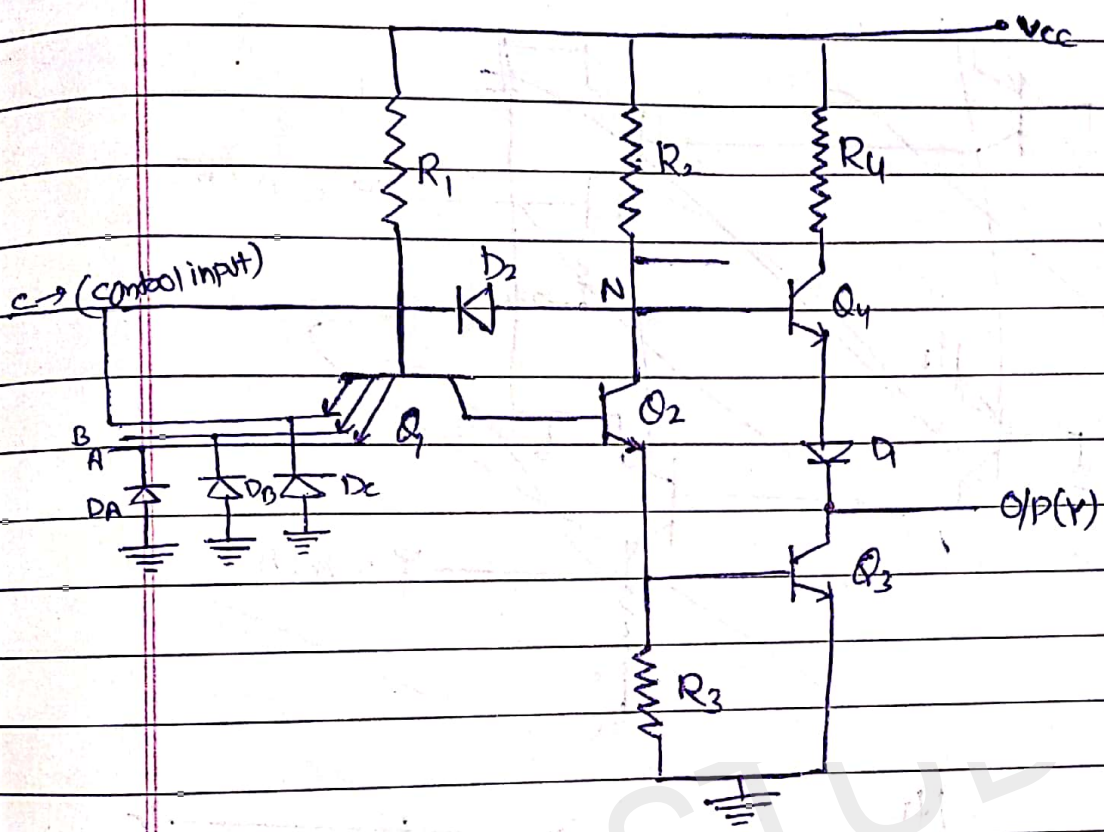 Vcc
R1
R2
R4
C → (control input)
D2
N
Q4
Q1
Q2
B
A
D1
DA
DB
DC
O/P(Y)
Q3
R3